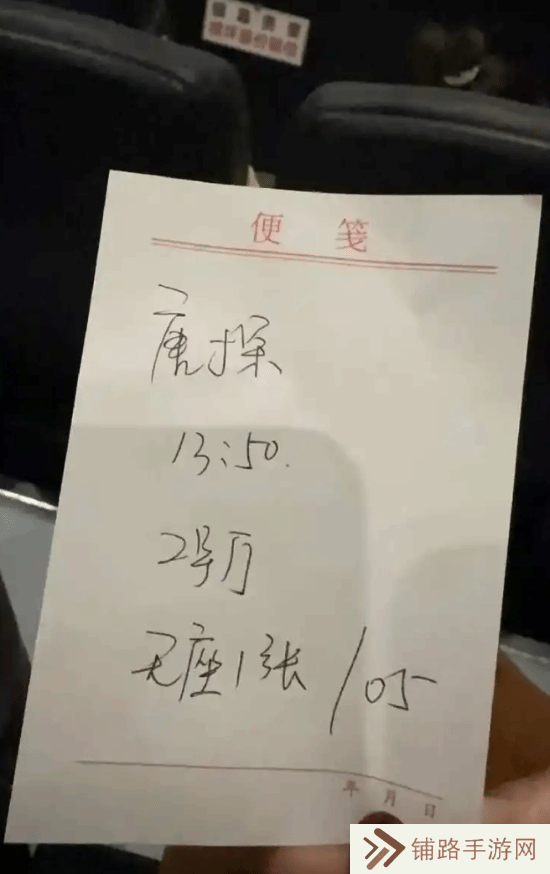 便笺
唐探
13:50.
2号厅
无座1张/05
年月日
铺路手游网